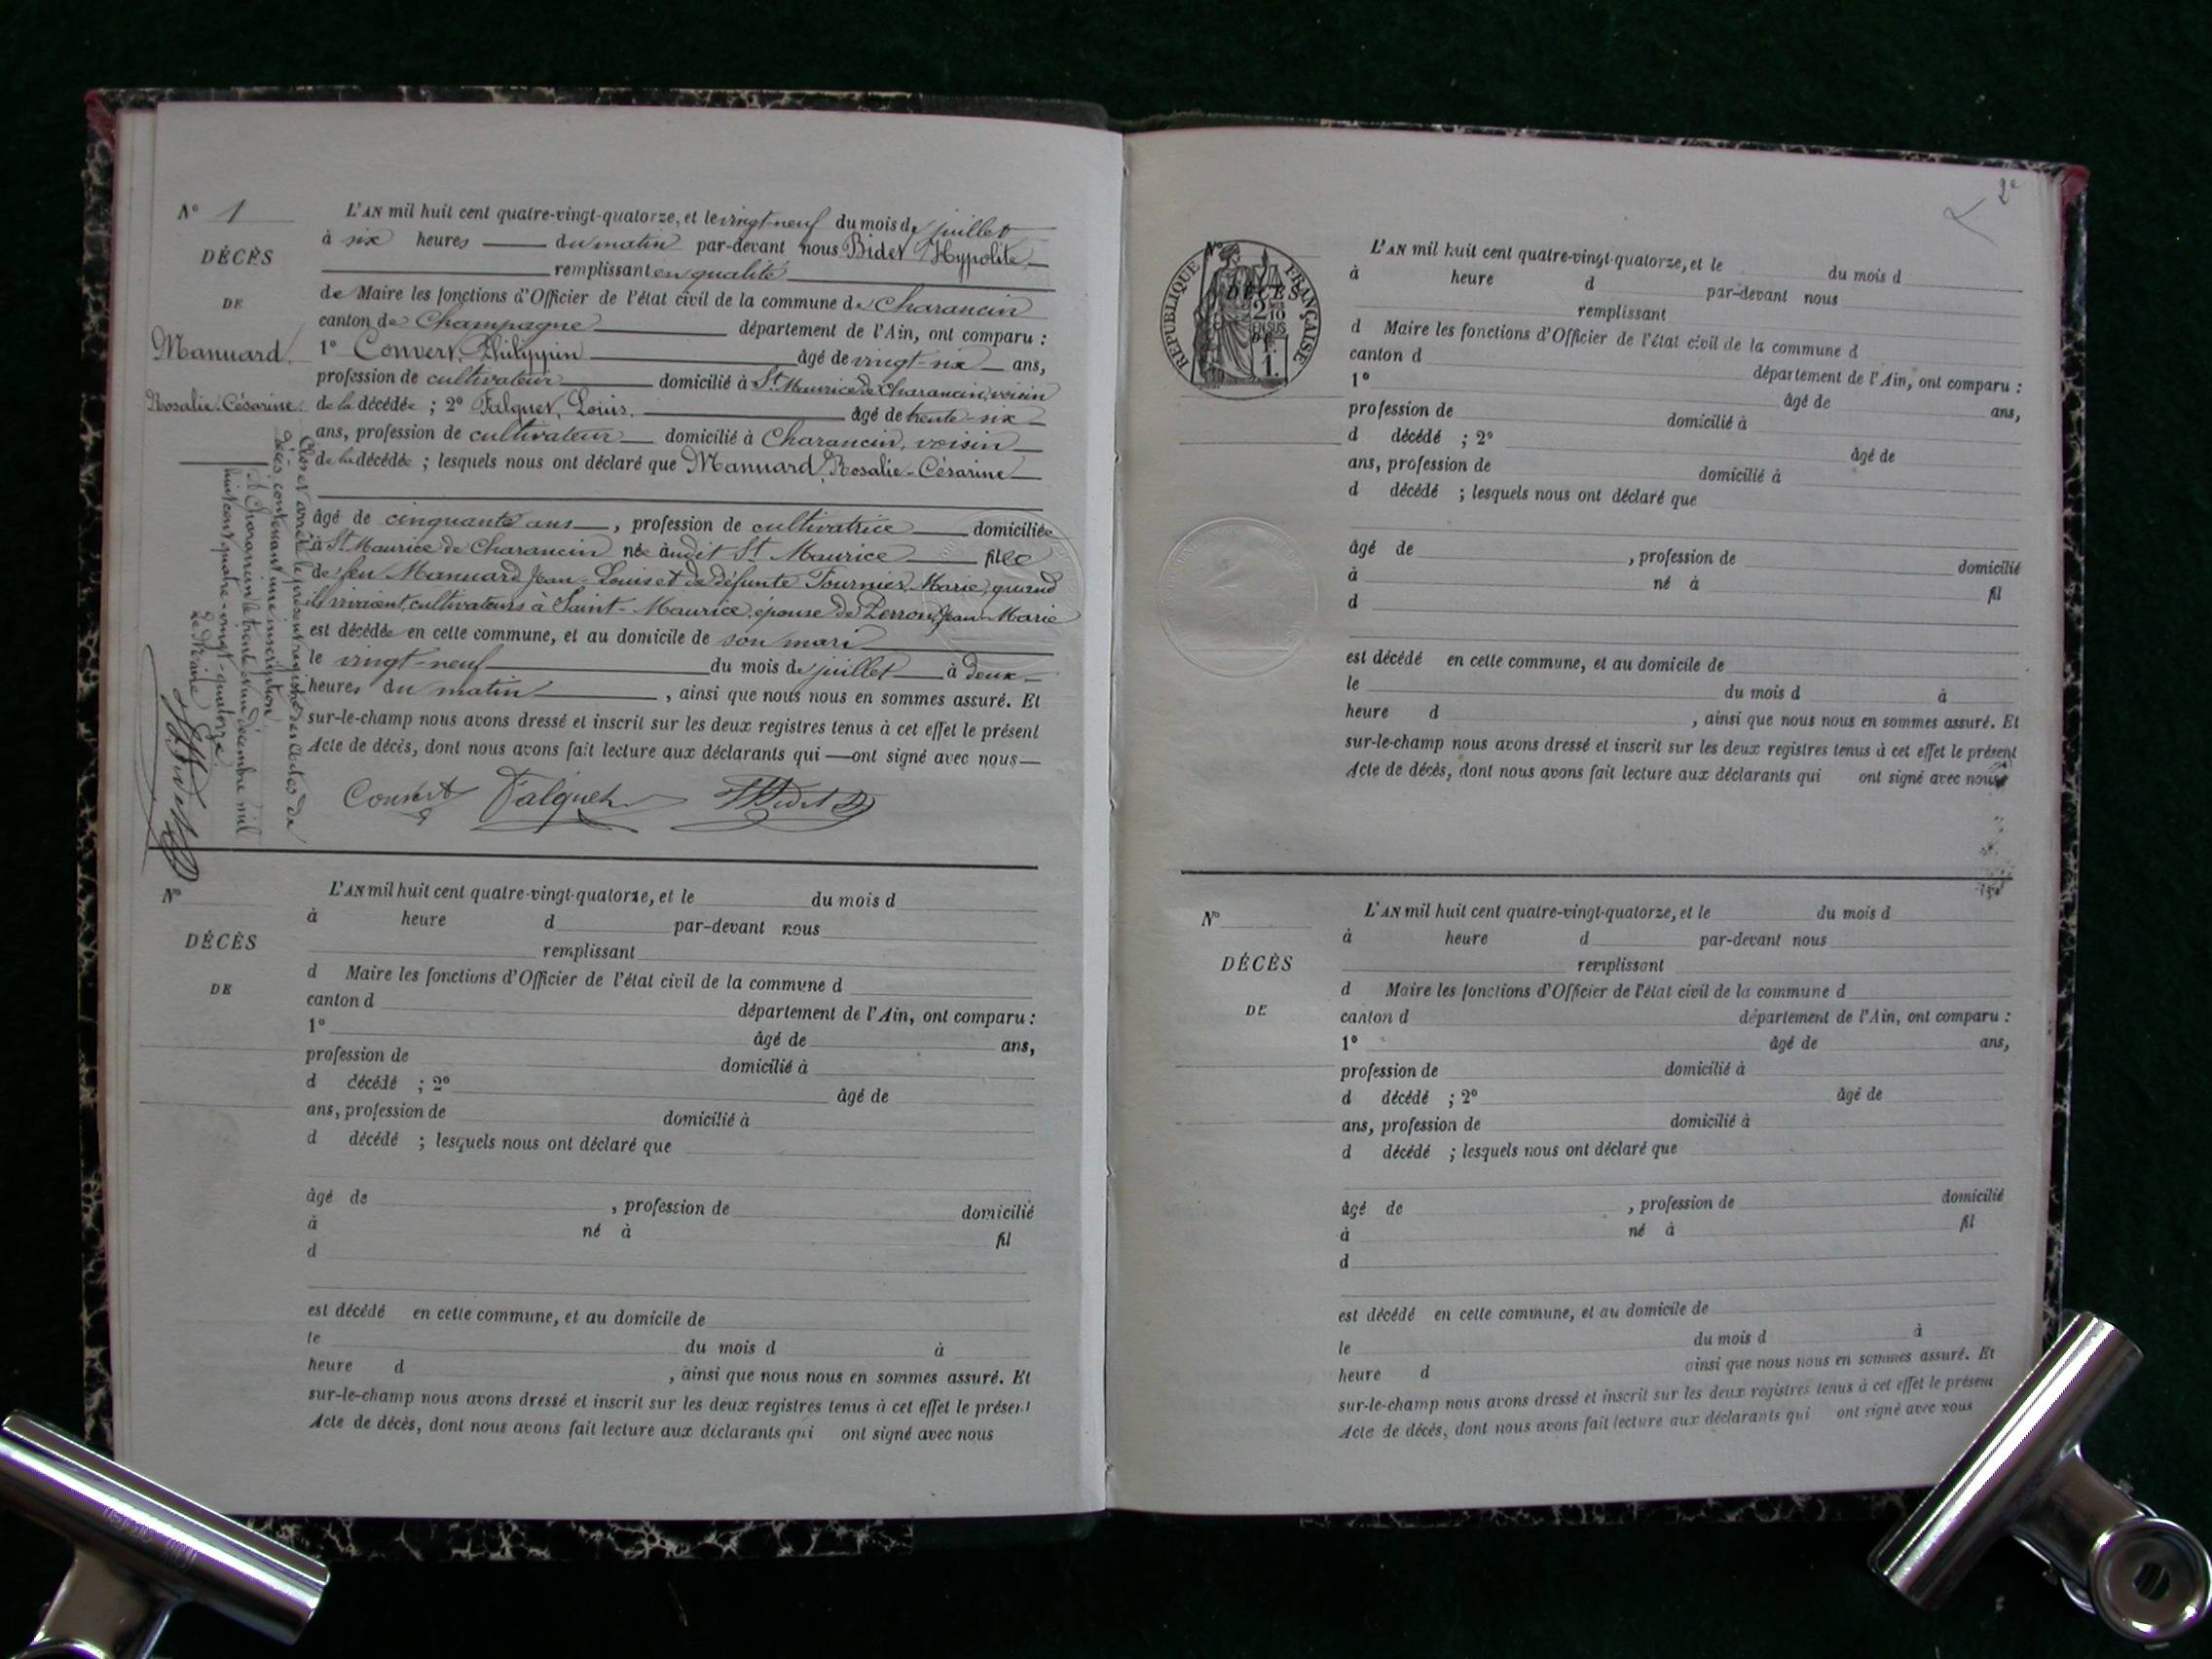 N° 1
DÉCÈS
DE
Manuard
Rosalie-Césarine
L'AN mil huit cent quatre-vingt-quatorze, et le vingt-neuf du mois de juillet
à six heures du matin par-devant nous Bidet Hypolite
remplissant en qualité
de Maire les fonctions d'Officier de l'état civil de la commune de Charancin
canton de Champagne département de l'Ain, ont comparu :
1° Convert, Philippin âgé de vingt-six ans,
profession de cultivateur domicilié à St Maurice de Charancin, voisin
de la décédée ; 2° Falquet, Louis. âgé de trente-six
ans, profession de cultivateur domicilié à Charancin, voisin
de la décédée ; lesquels nous ont déclaré que Manuard, Rosalie-Césarine
âgé de cinquante ans, profession de cultivatrice domiciliée
à St Maurice de Charancin née àudit St Maurice fille
de feu Manuard Jean-Louis et de défunte Fournier, Marie, quand
ils vivaient, cultivateurs à Saint-Maurice, épouse de Perron, Jean-Marie
est décédée en cette commune, et au domicile de son mari
le vingt-neuf du mois de juillet à deux
heures du matin, ainsi que nous nous en sommes assuré. Et
sur-le-champ nous avons dressé et inscrit sur les deux registres tenus à cet effet le présent
Acte de décès, dont nous avons fait lecture aux déclarants qui ont signé avec nous
Convert Falquet HBidet
Clos et arrêté le présent registre des actes de
décès, contenant une inscription
A Charancin le trente et un décembre mil
huit cent quatre-vingt-quatorze
Le Maire
HBidet
N°
DÉCÈS
DE
L'AN mil huit cent quatre-vingt-quatorze, et le du mois d
à heure d par-devant nous
remplissant
d Maire les fonctions d'Officier de l'état civil de la commune d
canton d département de l'Ain, ont comparu :
1° âgé de ans,
profession de domicilié à
d décédé ; 2° âgé de
ans, profession de domicilié à
d décédé ; lesquels nous ont déclaré que
âgé de , profession de domicilié
à né à fil
d
est décédé en cette commune, et au domicile de
le du mois d à
heure d , ainsi que nous nous en sommes assuré. Et
sur-le-champ nous avons dressé et inscrit sur les deux registres tenus à cet effet le présent
Acte de décès, dont nous avons fait lecture aux déclarants qui ont signé avec nous
2e
N°
RÉPUBLIQUE FRANÇAISE
DÉCÈS
2/10
EN SUS
DE
1.
L'AN mil huit cent quatre-vingt-quatorze, et le du mois d
à heure d par-devant nous
remplissant
d Maire les fonctions d'Officier de l'état civil de la commune d
canton d département de l'Ain, ont comparu :
1° âgé de ans,
profession de domicilié à
d décédé ; 2° âgé de
ans, profession de domicilié à
d décédé ; lesquels nous ont déclaré que
âgé de , profession de domicilié
à né à fil
d
est décédé en cette commune, et au domicile de
le du mois d à
heure d , ainsi que nous nous en sommes assuré. Et
sur-le-champ nous avons dressé et inscrit sur les deux registres tenus à cet effet le présent
Acte de décès, dont nous avons fait lecture aux déclarants qui ont signé avec nous
N°
DÉCÈS
DE
L'AN mil huit cent quatre-vingt-quatorze, et le du mois d
à heure d par-devant nous
remplissant
d Maire les fonctions d'Officier de l'état civil de la commune d
canton d département de l'Ain, ont comparu :
1° âgé de ans,
profession de domicilié à
d décédé ; 2° âgé de
ans, profession de domicilié à
d décédé ; lesquels nous ont déclaré que
âgé de , profession de domicilié
à né à fil
d
est décédé en cette commune, et au domicile de
le du mois d à
heure d ainsi que nous nous en sommes assuré. Et
sur-le-champ nous avons dressé et inscrit sur les deux registres tenus à cet effet le présent
Acte de décès, dont nous avons fait lecture aux déclarants qui ont signé avec nous